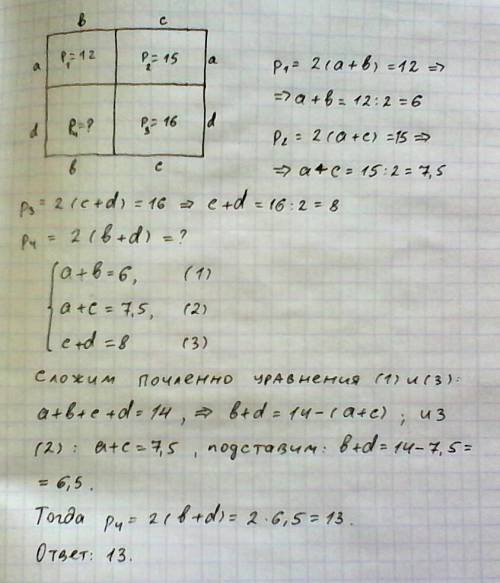 в c
a P₁=12 P₂=15 a
d P₄=? P₃=16 d
в c
P₁ = 2(a+в) =12 ⇒
⇒ a+в = 12:2 = 6
P₂ = 2(a+c) =15 ⇒
⇒ a+c = 15:2 = 7,5
P₃ = 2(c+d) = 16 ⇒ c+d = 16:2 = 8
P₄ = 2(в+d) = ?
a+в=6, (1)
a+c = 7,5, (2)
c+d = 8 (3)
Сложим почленно уравнения (1) и (3):
a+в+c+d=14, ⇒ в+d = 14-(a+c); из
(2): a+c = 7,5, подставим: в+d=14-7,5=
= 6,5.
Тогда P₄ = 2(в+d) = 2·6,5 = 13.
Ответ: 13.